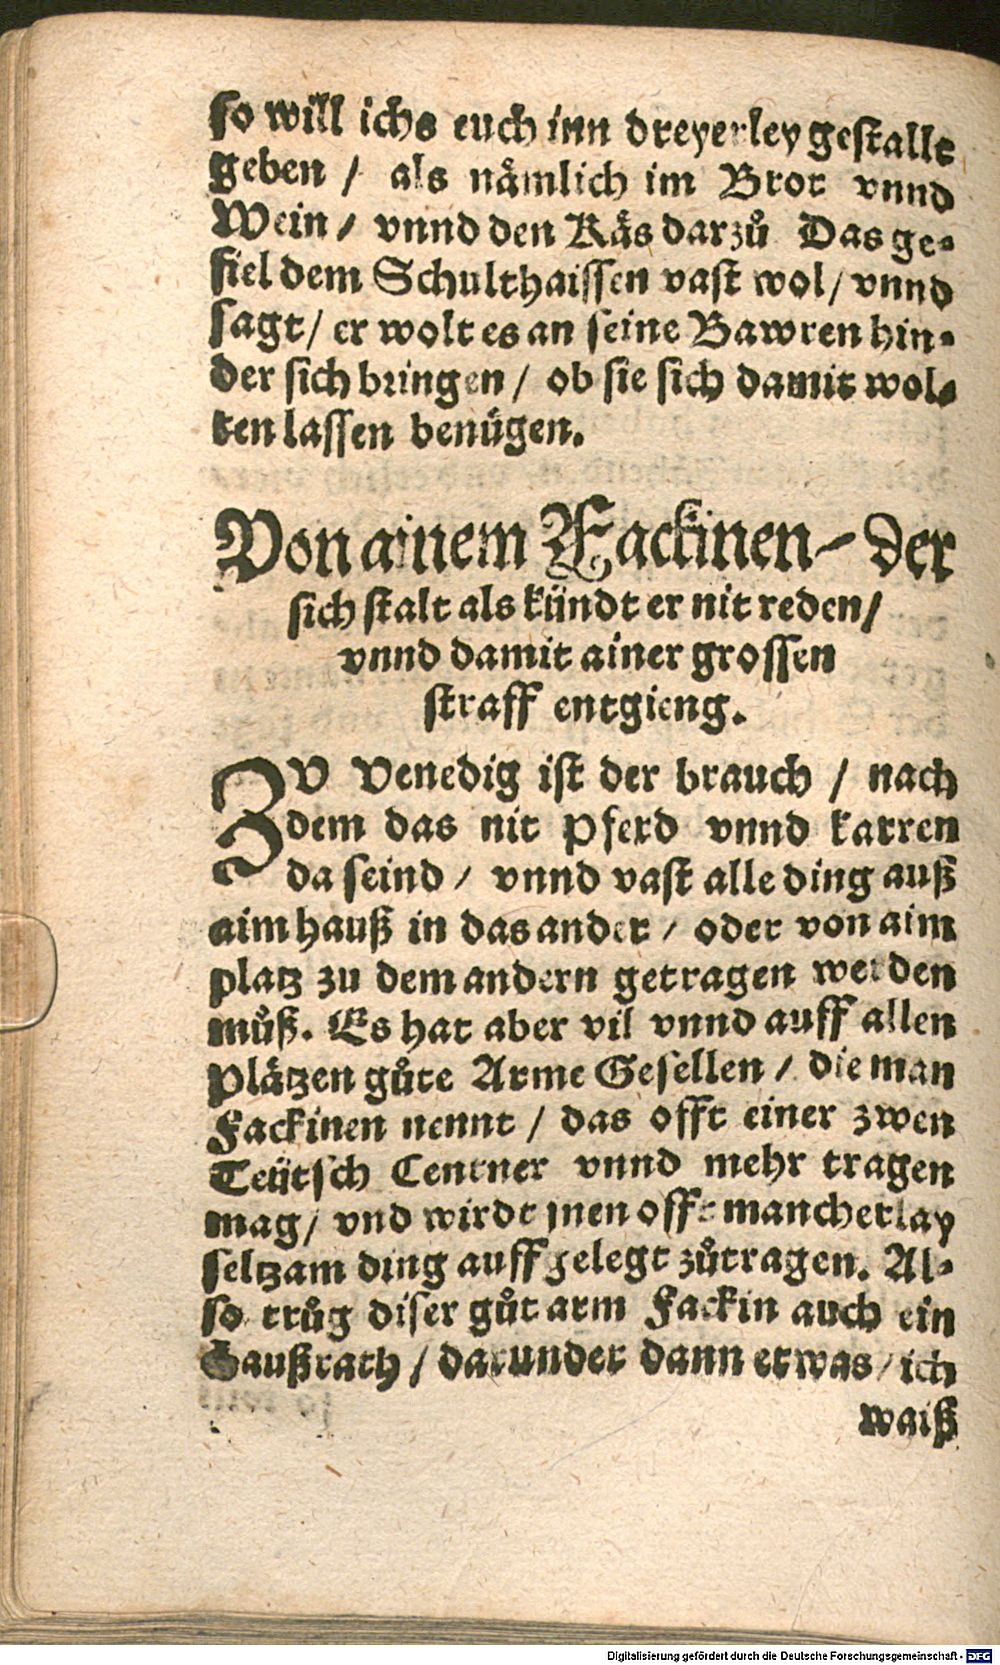 so will ichs euch inn dreyerley gestallt
geben / als nämlich im Brot vnnd
Wein / vnnd den Käs darzů Das ge-
fiel dem Schulthaissen vast wol / vnnd
sagt / er wolt es an seine Bawren hin-
der sich bringen / ob sie sich damit wol-
ten lassen benügen.
Von ainem Fackinen / der
sich stalt als kündt er nit reden /
vnnd damit ainer grossen
straff entgieng.
ZV Venedig ist der brauch / nach
dem das nit Pferd vnnd karren
da seind / vnnd vast alle ding auß
aim hauß in das ander / oder von aim
platz zu dem andern getragen werden
můß. Es hat aber vil vnnd auff allen
Plätzen gůte Arme Gesellen / die man
Fackinen nennt / das offt einer zwen
Teütsch Centner vnnd mehr tragen
mag / vnd wirdt jnen offt mancherlay
seltzam ding auff gelegt zůtragen. Al-
so trůg diser gůt arm Fackin auch ein
Haußrath / darunder dann etwas / ich
waiß
Digitalisierung gefördert durch die Deutsche Forschungsgemeinschaft - DFG